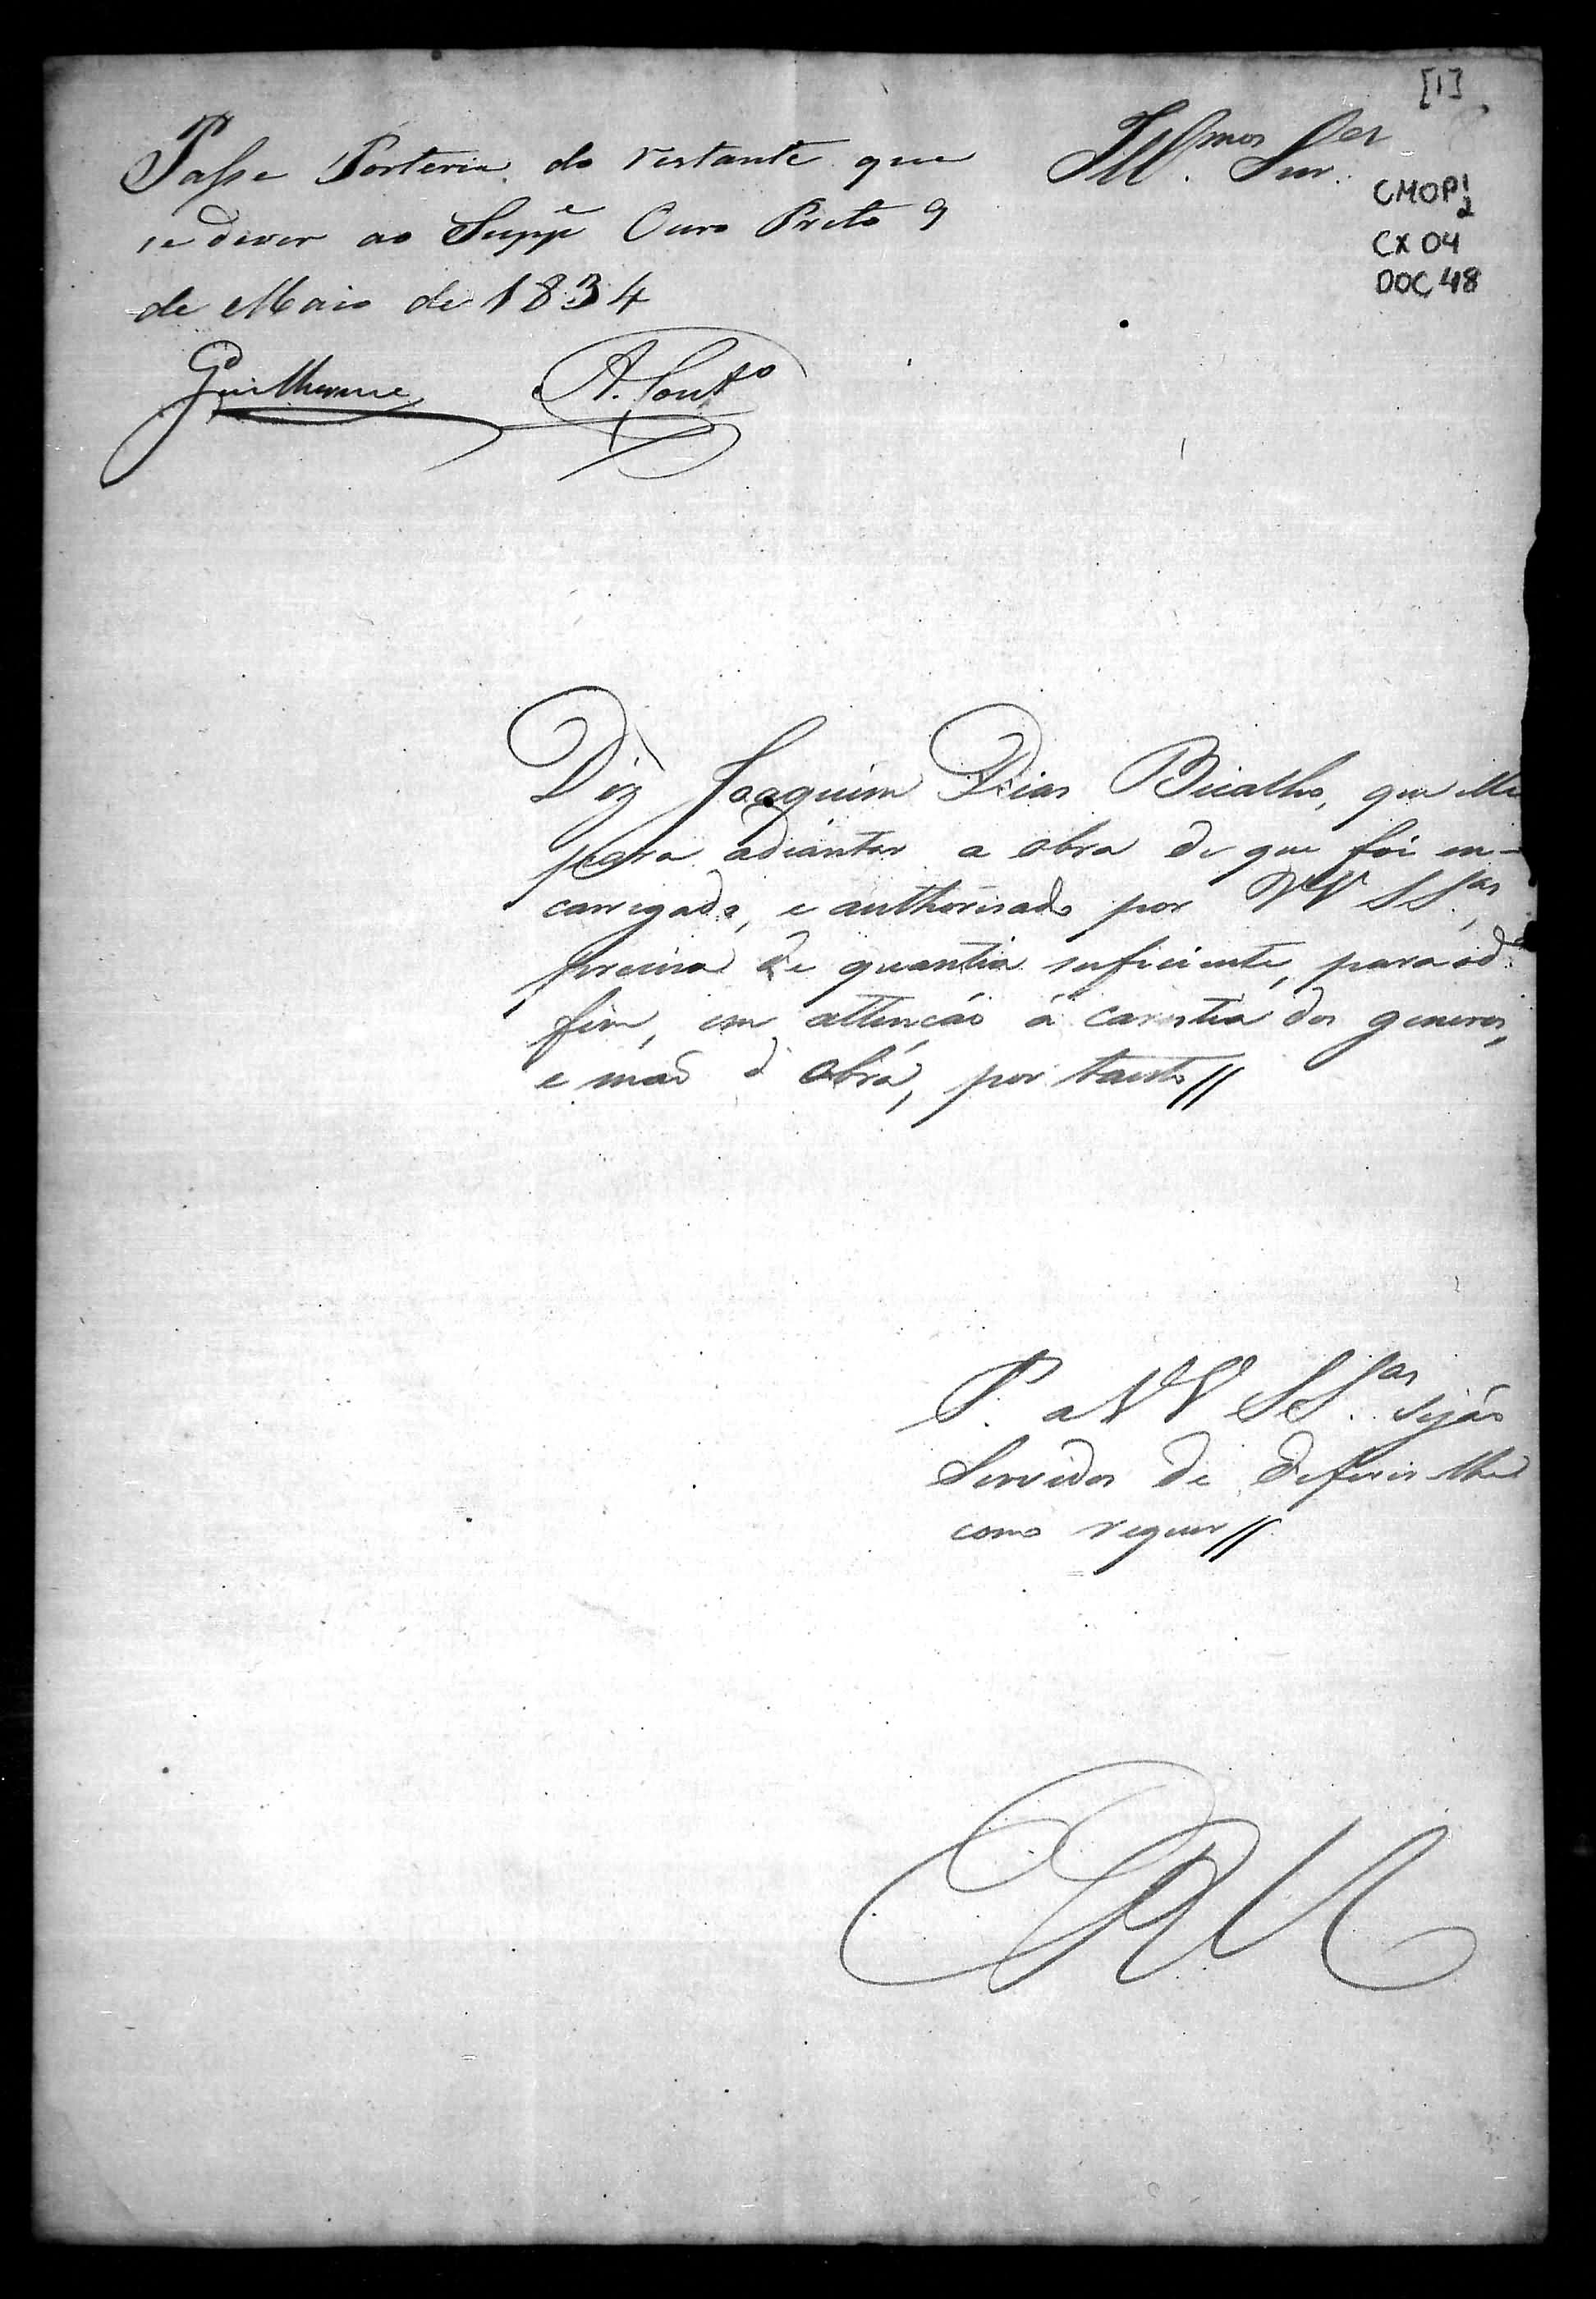 [1]
Illmos Snres
CMOP!
2
CX 04
DOC 48
Passe Porteria do restante que
se dever ao Suppe Ouro Preto 9
de Maio de 1834
Guilherme A. Couto
Diz Joaquim Dias Bicalho, que elle
para adiantar a obra de que foi en-
carregado, e authorisado por VV SSas,
precisa de quantia suficiente, para od.
fim, em attencão á carestia dos generos,
e mão d'obra, por tanto//
P. a VV SSas. sejão
Servidos de deferir-lhe
como requer//
ERM